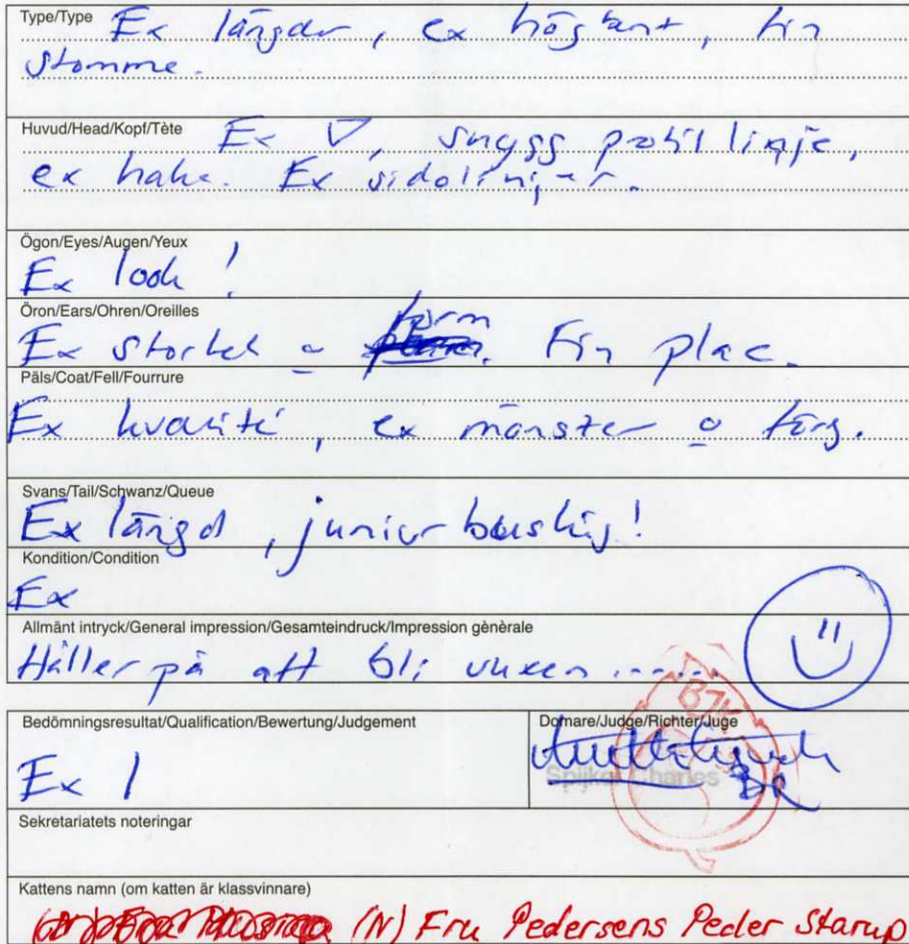 Type/Type Ex längder, ex högbent, fin
stomme.
Huvud/Head/Kopf/Tète Ex ▽, snygg profillinje,
ex haka. Ex sidolinjer.
Ögon/Eyes/Augen/Yeux
Ex look!
Öron/Ears/Ohren/Oreilles
Ex storlek o form. Fin plac.
Päls/Coat/Fell/Fourrure
Ex kvalité, ex mönster o färg.
Svans/Tail/Schwanz/Queue
Ex längd, junior buskig!
Kondition/Condition
Ex
Allmänt intryck/General impression/Gesamteindruck/Impression gènèrale
Håller på att bli vuxen......
Bedömningsresultat/Qualification/Bewertung/Judgement
Ex 1
Domare/Judge/Richter/Juge
Spijker Charles
Sekretariatets noteringar
Kattens namn (om katten är klassvinnare)
(N) Fru Pedersens Peder Starup